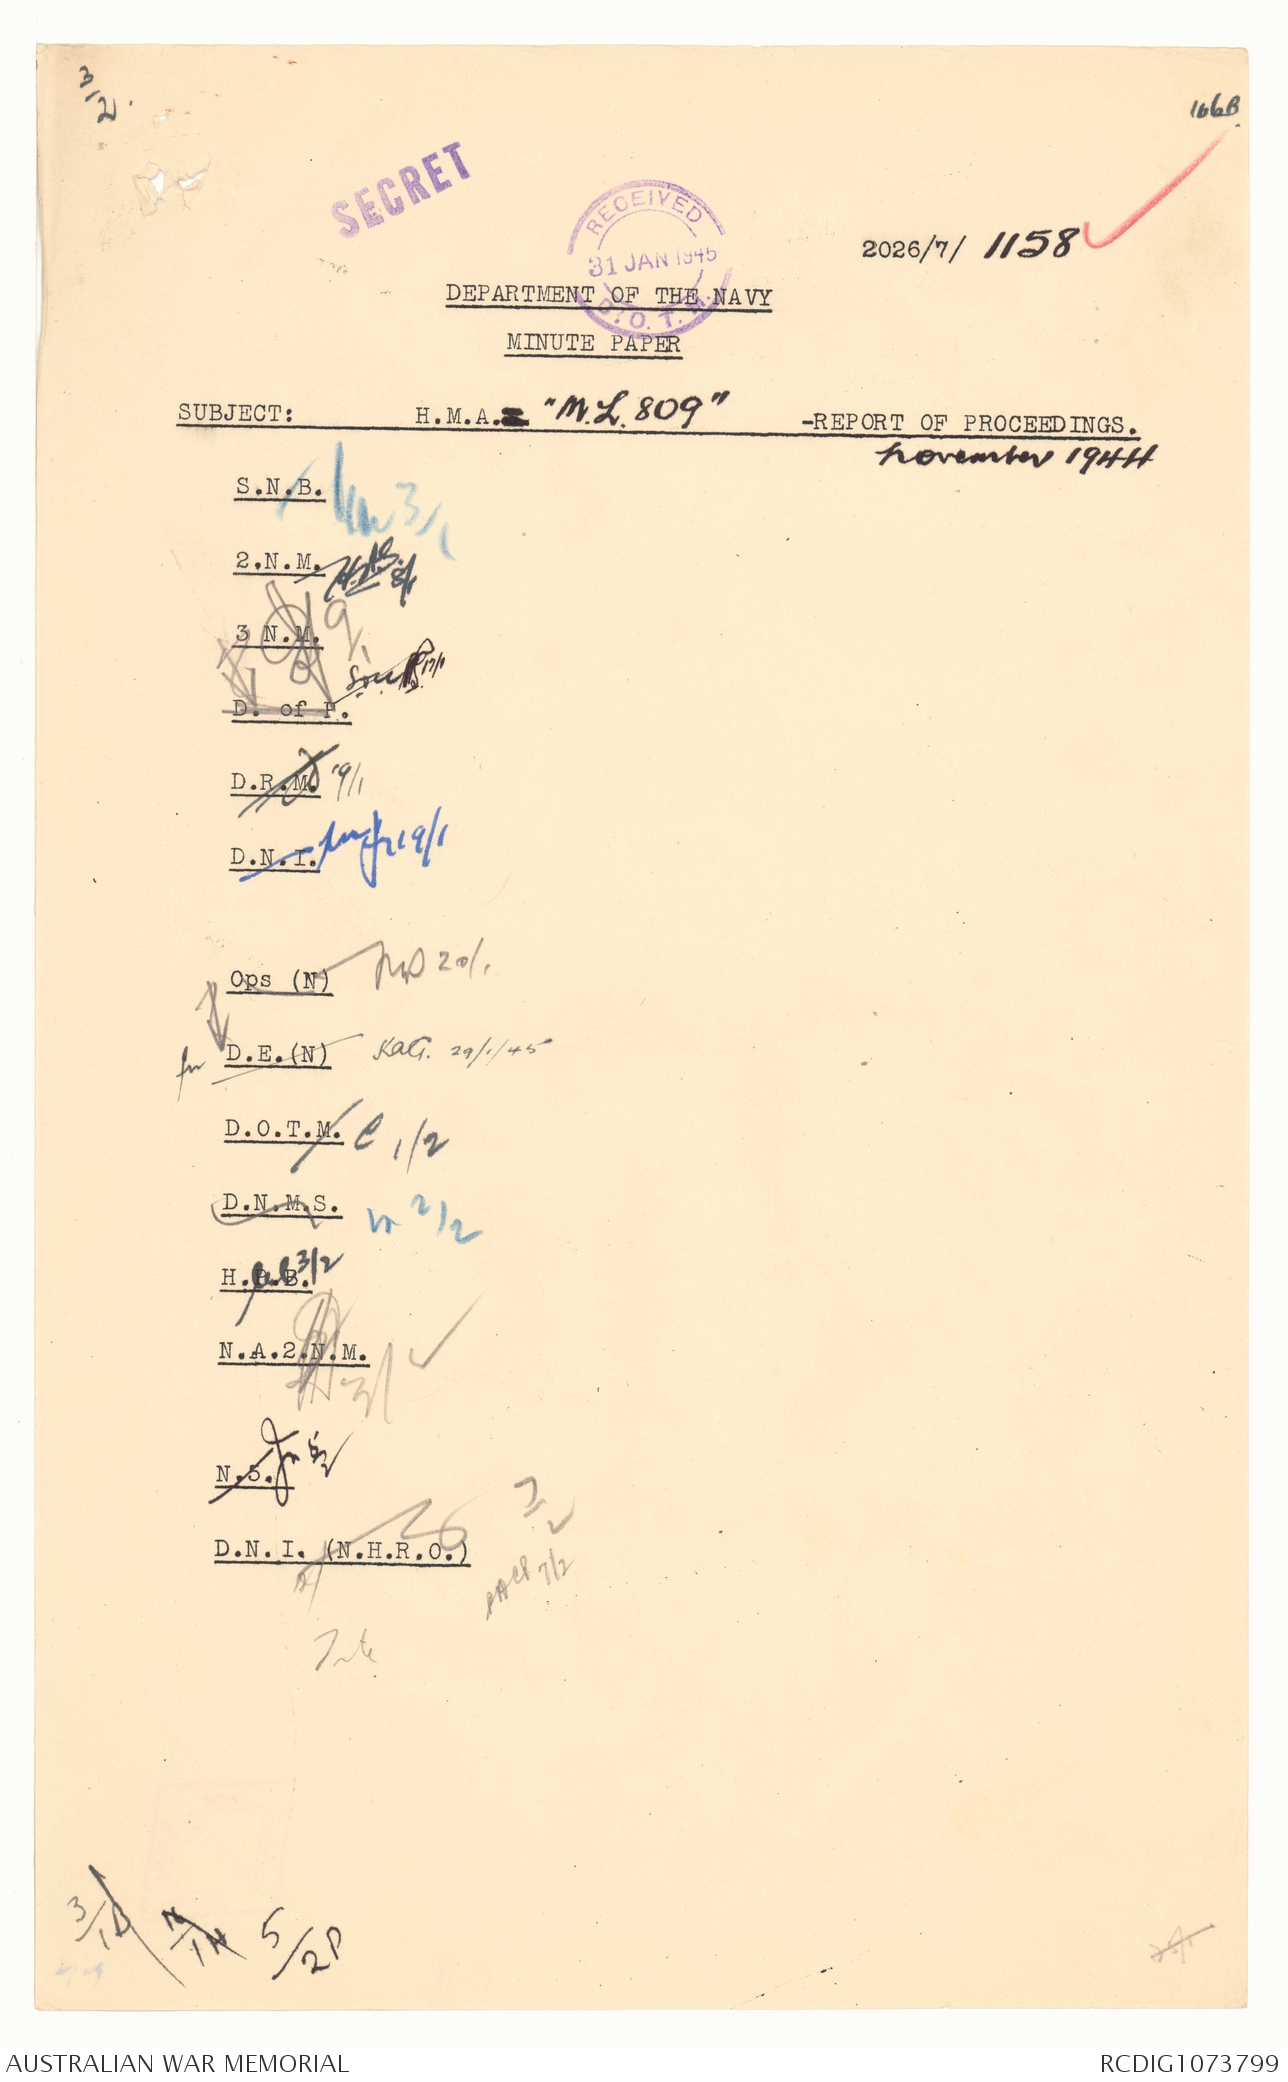 3/2.
166B
SECRET
RECEIVED
31 JAN 1945
D.O.T.M.
2026/7/ 1158
DEPARTMENT OF THE NAVY
MINUTE PAPER
SUBJECT: H.M.A. "M.L. 809" -REPORT OF PROCEEDINGS.
November 1944
S.N.B. 3/1
2.N.M. 8/1
3 N.M. 9/1
17/1
D. of P.
D.R.M. 19/1
D.N.I. 19/1
Ops (N) 20/1
for D.E.(N) KaG. 29/1/45
D.O.T.M. C 1/2
D.N.M.S. 2/2
H.P.B. 3/2
N.A.2.N.M. 3/
N.5. 5/2
7/2
D.N.I. (N.H.R.O.)
7/2
3/1
5/2P
AUSTRALIAN WAR MEMORIAL
RCDIG1073799